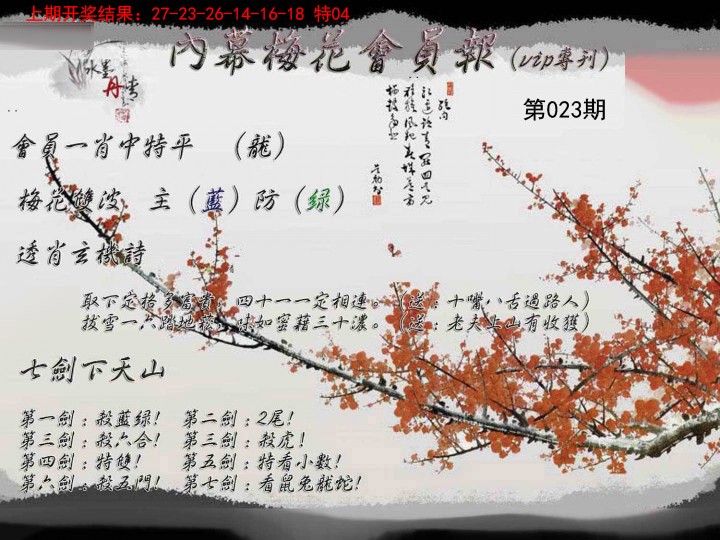 上期开奖结果：27-23-26-14-16-18 特04
水墨丹情
內幕梅花會員報(vip專刊)
第023期
會員一肖中特平 （龍）
梅花雙波 主（藍）防（绿）
透肖玄機詩
取下定格多富貴，四十一一定相連。（送：十嘴八舌過路人）
拔雪一六踏地
味如蜜藉三十濃。（送：老夫上山有收獲）
七劍下天山
第一劍：殺藍绿! 第二劍：2尾!
第三劍：殺六合! 第三劍：殺虎!
第四劍：特雙! 第五劍：特看小數!
第六劍：殺五門! 第七劍：看鼠兔龍蛇!